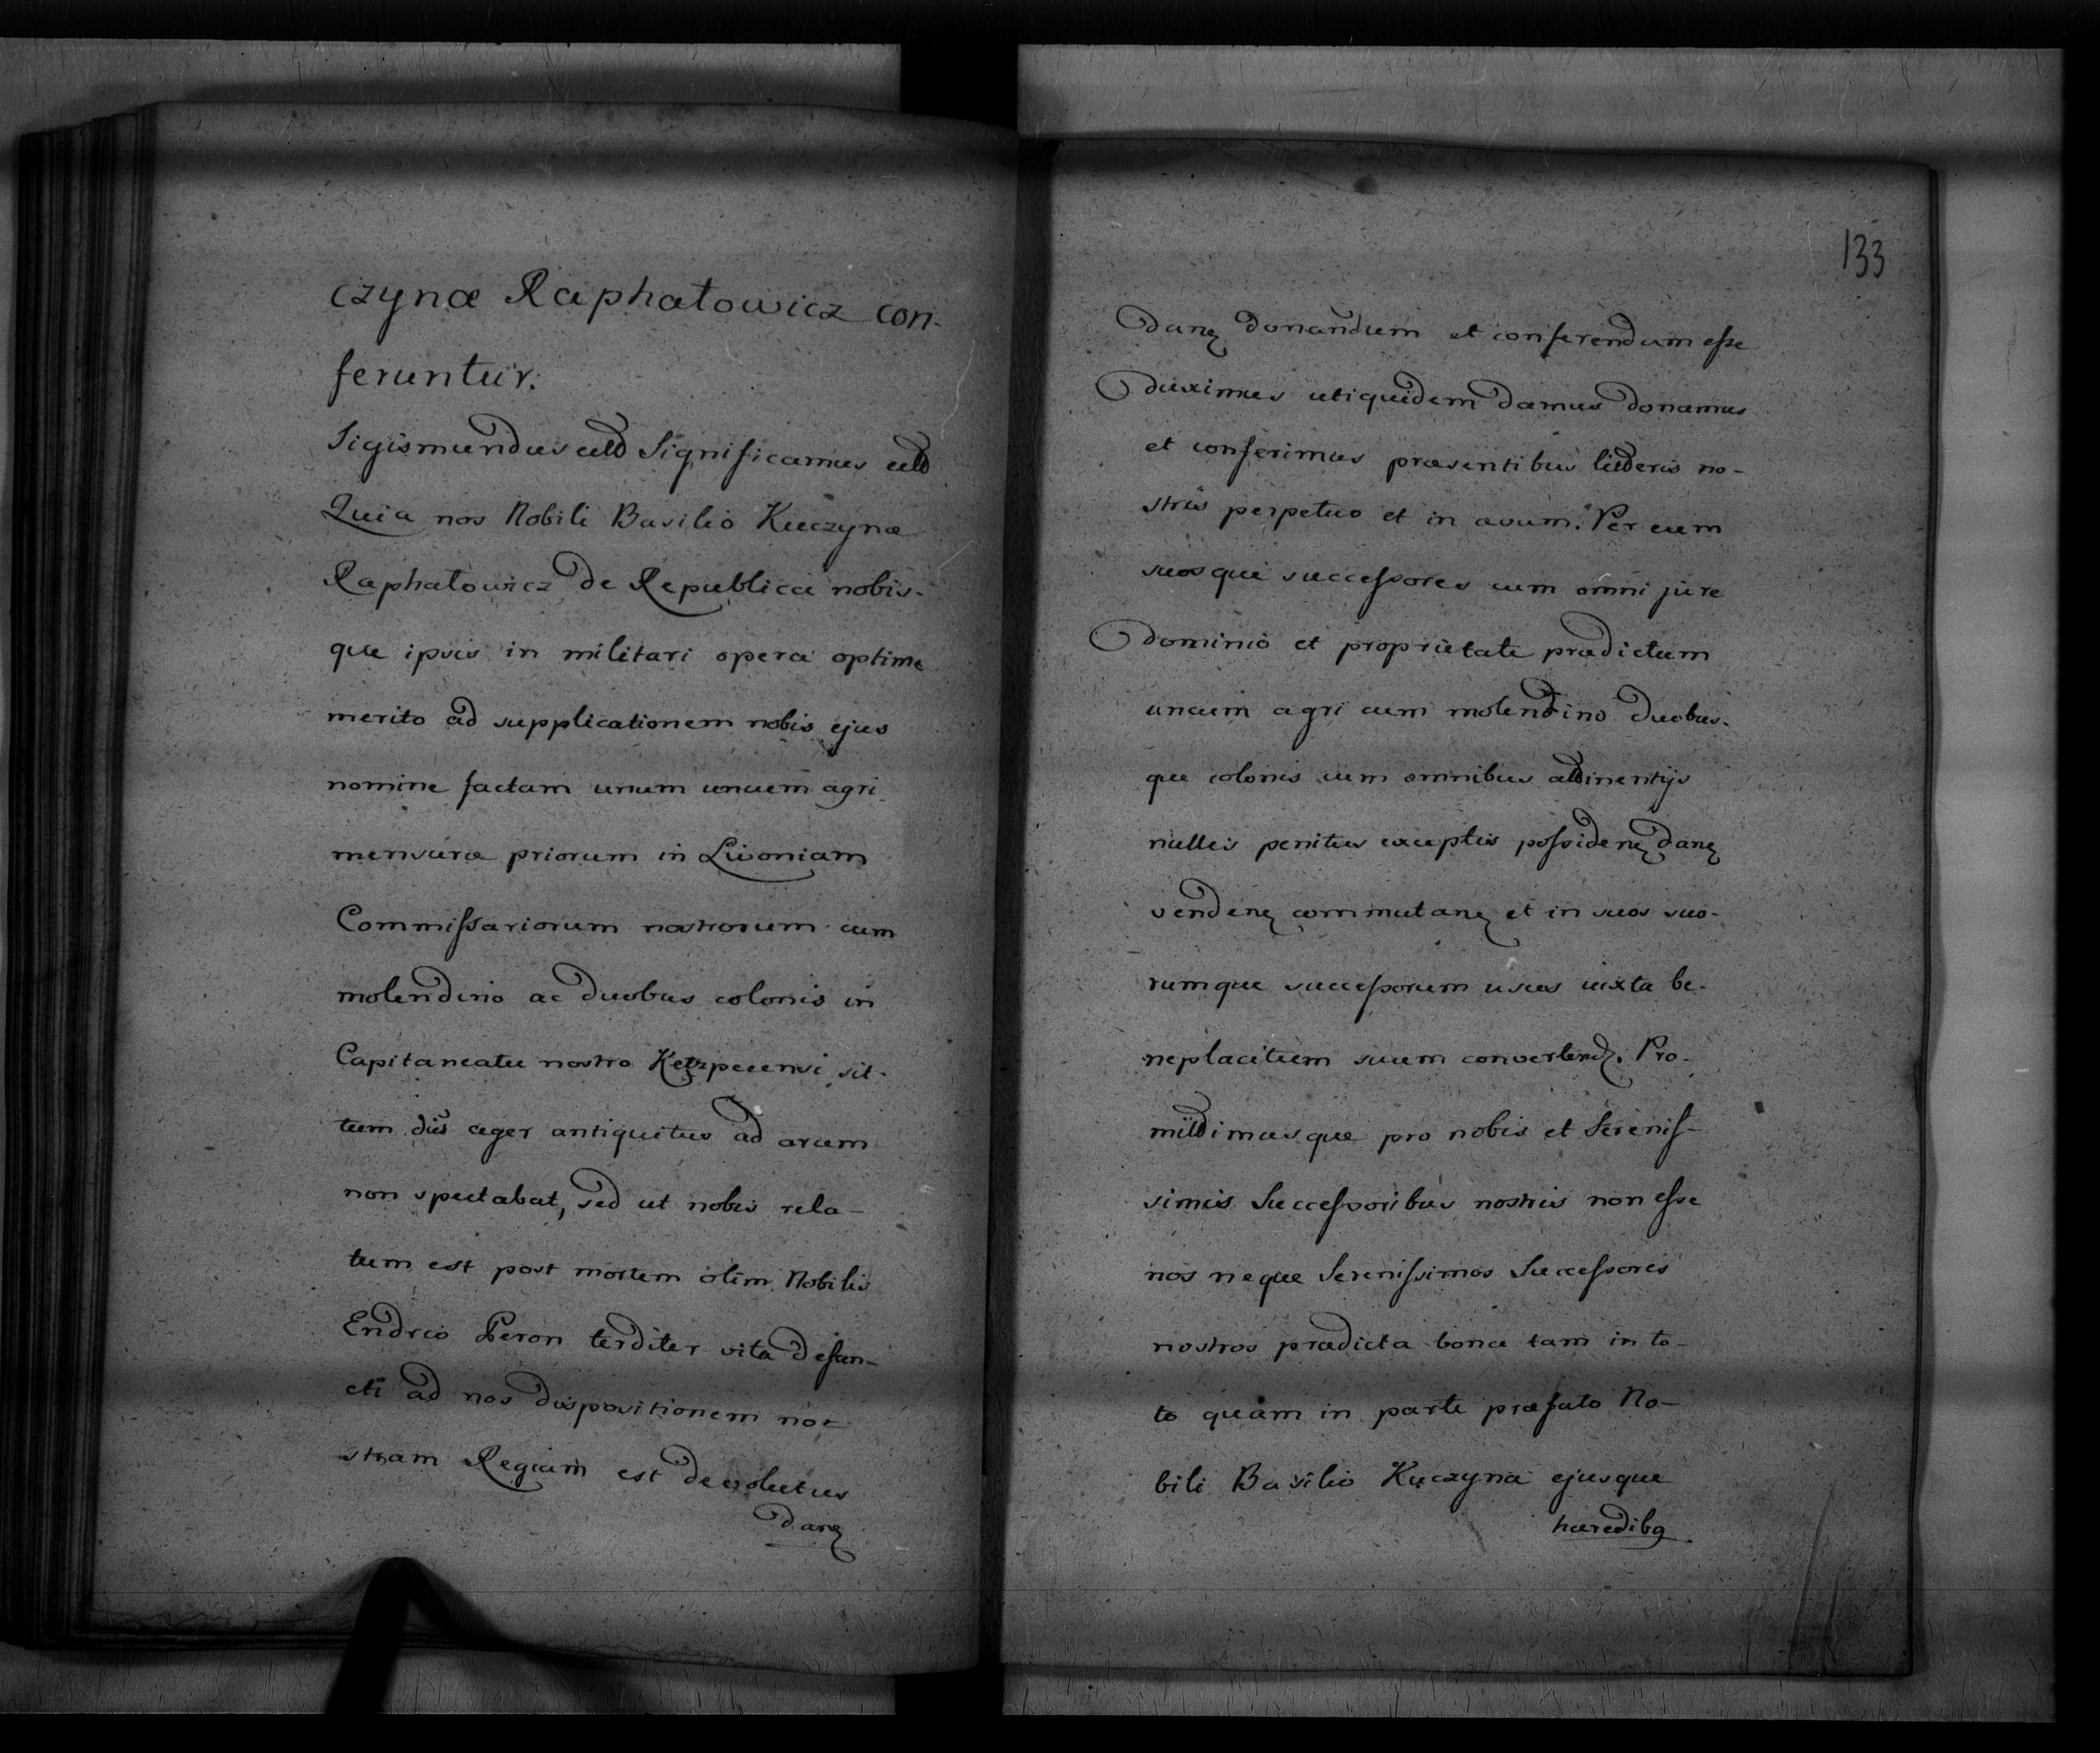 czynæ Raphałowicz con-
feruntur.
Sigismundus etttd Significamus etttd
Quia nos Nobili Basilio Kuczynæ
Raphałowicz de Republica nobis-
que ipsis in militari opera optime
merito ad supplicationem nobis ejus
nomine factam unum uncum agri
mensuræ priorum in Livoniam
Commissariorum nostrorum cum
molendino ac duobus colonis in
Capitaneatu nostro sit-
tum dũs ager antiquitus ad arcem
non spectabat, sed ut nobis rela-
tum est post mortem olim Nobilis
Endrio Peron terditer vita defun-
cti ad nos dispositionem no-
stram Regiam est devolutus
danȝ
133
danȝ donandum et conferendum esse
duximus uti quidem damus donamus
et conferimus præsentibus litteris no-
stris perpetuo et in ævum. Per eum
suosque successores cum omni jure
dominio et proprietate prædictum
uncum agri cum molendino duobus-
que colonis cum omnibus attinentijs
nullis penitus exceptis possidenȝ danȝ
vendenȝ commutanȝ et in suos suo-
rumque successorum usus iuxta be-
neplacitum suum convertenȝ. Pro-
mittimusque pro nobis et Serenis-
simis Successoribus nostris non esse
nos neque Serenissimos Successores
nostros prædicta bona tam in to-
to quam in parte præfato No-
bili Basilio Kuczyna ejusque
hæredibꝫ